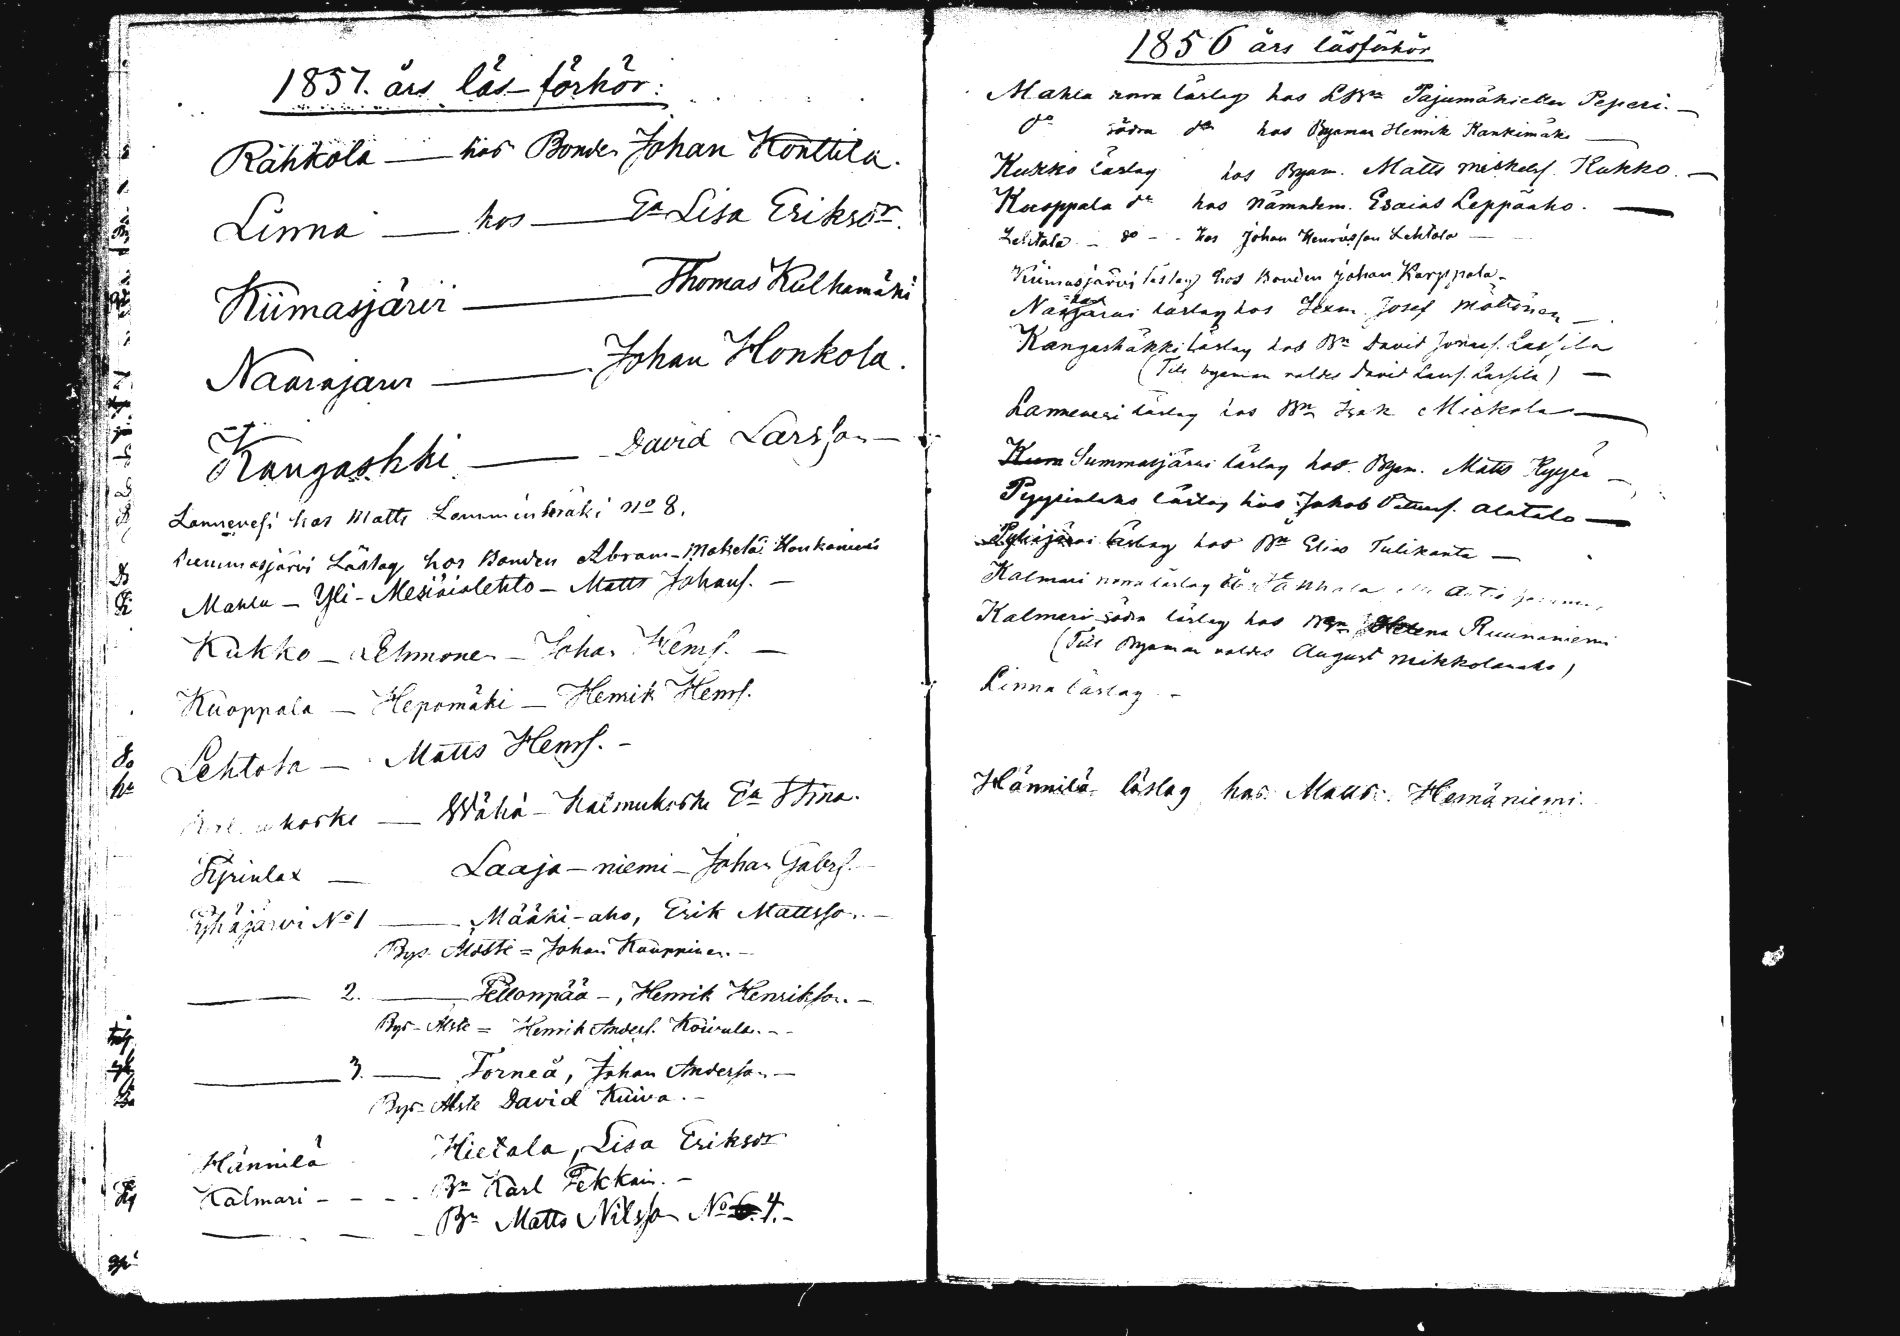 1857. års läs-förhör:
Rahkola — hos Bonden Johan Konttila.
Linna — hos — Ea Lisa Eriksdr.
Kiimasjärvi — Thomas Kulhamäki
Naarajärvi — Johan Honkola.
Kangashki — David Larsson —
Lannevesi hos Matts Lamminperäki No 8.
Summasjärvi Läslag hos Bonden Abram Makelä Honkaniemi
Mahlu — Yli-Mesiäislehto — Matts Johansf. —
Kukko — Lehmonen — Johan Henrsf. —
Kuoppala — Hepomäki — Henrik Henrsf.
Lehtola — Matts Henrsf. —
koski — Wähä-Kalmukoski Ea Stina.
Pyrinlax — Laaja-niemi — Johan Gabrsf. —
Pyhäjärvi No 1 — Määki-aho, Erik Mattsson. —
Bys- Älste = Johan Kauppinen. —
— 2. — Pellonpää —, Henrik Henrikson. —
Bys- Älste = Henrik Andersf. Koivula. - -
— 3. — Torneå, Johan Anderson —
Bys- Älste David Kuiva. —
Hännilä Hietala, Lisa Eriksdr
Kalmari - - - Bn Karl Pekkain. —
— — - Bn Matts Nilsson No 6. 4. —
1856 års läsförhör
Mahlu norra läslag hos LBn Pajumäki eller Peperi. —
do södra do hos Byaman Henrik Kankimäki —
Kukko läslag hos Byam. Matts Mickelsf. Kukko. —
Kuoppala do hos Nämndem. Esaias Leppäaho. —
Lehtola — do - - hos Johan Henriksson Lehtola —
Kiimasjärvi läslag hos Bonden Johan Karppala —
Naarajärvi läslag hos Sexm. Josef Mötönen —
Kangashäkki läslag hos Bn David Johansf. Lassila
(Till byaman valdes David Larsf. Lassila) —
Lannevesi läslag hos Bn Isak Mickola —
Kum Summasjärvi läslag hos Byam. Matts Kyyrä —
Pyyrinlaks läslag hos Jakob Pettersf. Alatalo —
Pyhäjärvi läslag hos Bn Elias Tulikanta —
Kalmari norra läslag
Kalmari södra läslag hos Bn Helena Ruunaniemi
(Till Byaman valdes August Mikkolanaho)
Linna läslag. —
Hännilä läslag hos Matts Hemäniemi.